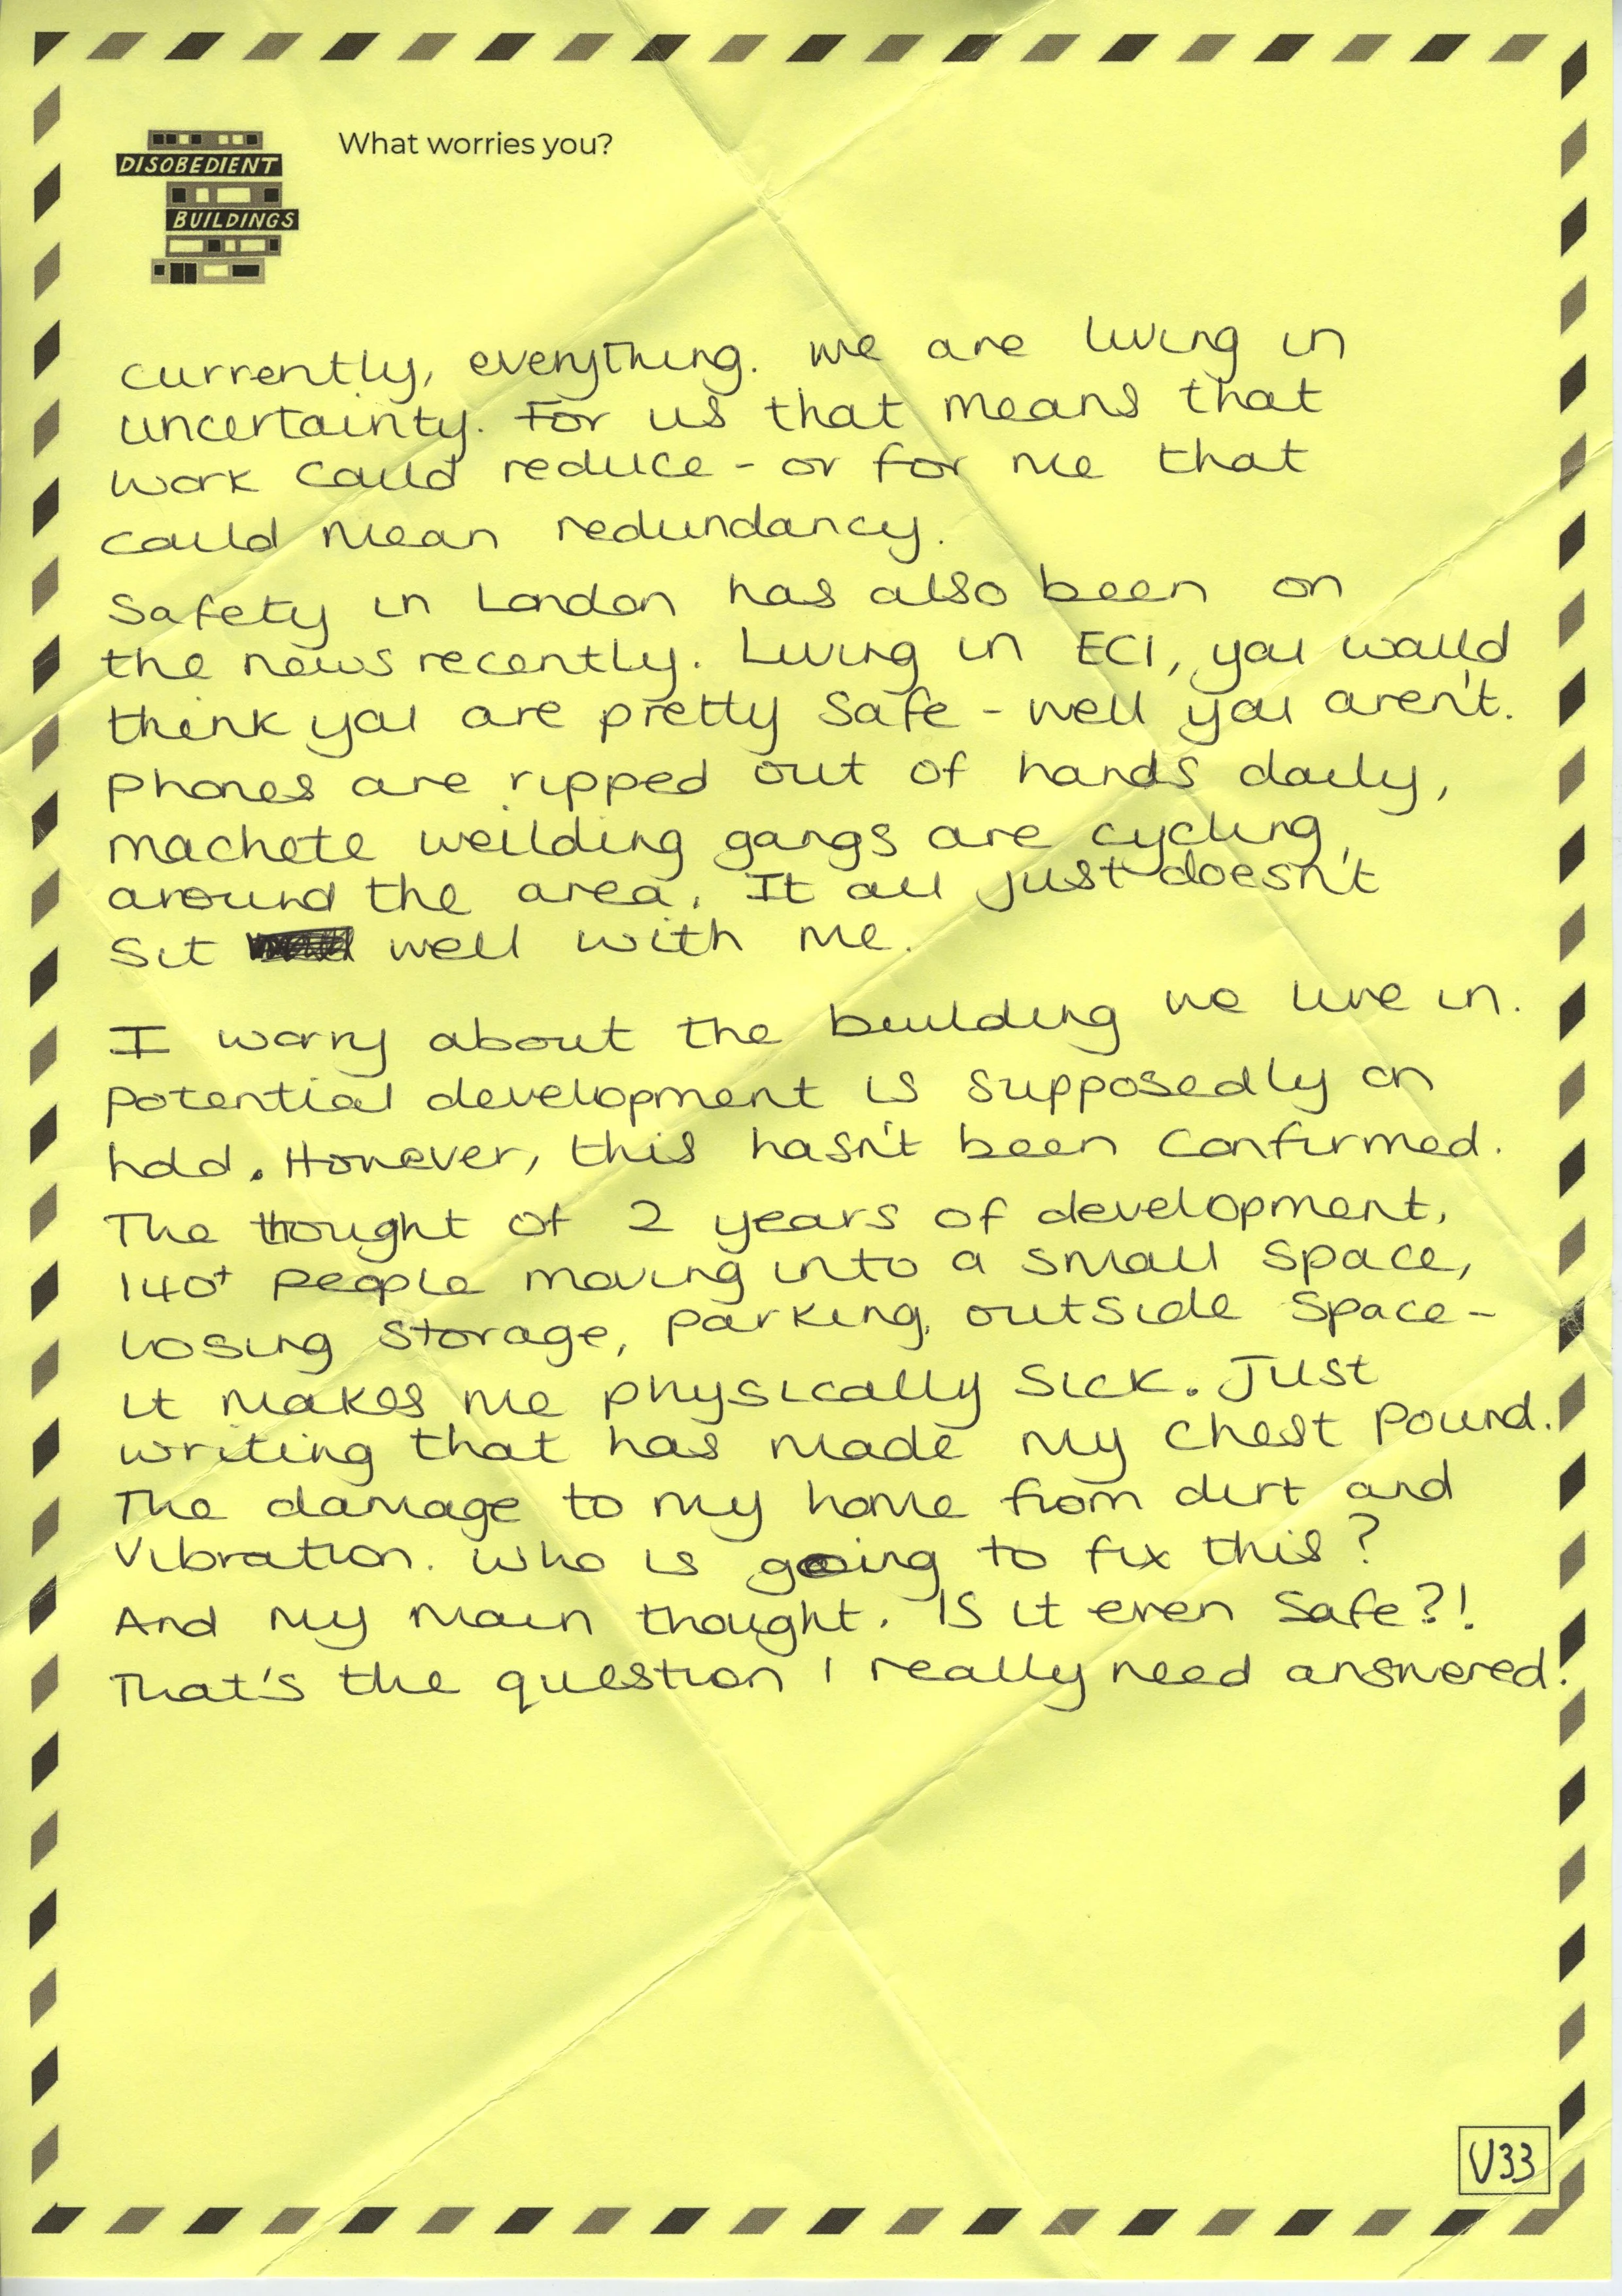 DISOBEDIENT
BUILDINGS
What worries you?
currently, everything. we are living in
uncertainty. For us that means that
work could reduce - or for me that
could mean redundancy.
Safety in London has also been on
the news recently. Living in EC1, you would
think you are pretty safe - well you aren't.
phones are ripped out of hands daily,
machete weilding gangs are cycling
around the area. It all just doesn't
sit well with me.
I worry about the building we live in.
potential development is supposedly on
hold. However, this hasn't been confirmed.
The thought of 2 years of development,
140+ people moving into a small space,
losing storage, parking, outside space -
it makes me physically sick. Just
writing that has made my chest pound.
The damage to my home from dirt and
vibration. who is going to fix this?
And my main thought. Is it even safe?!
That's the question I really need answered!
V33